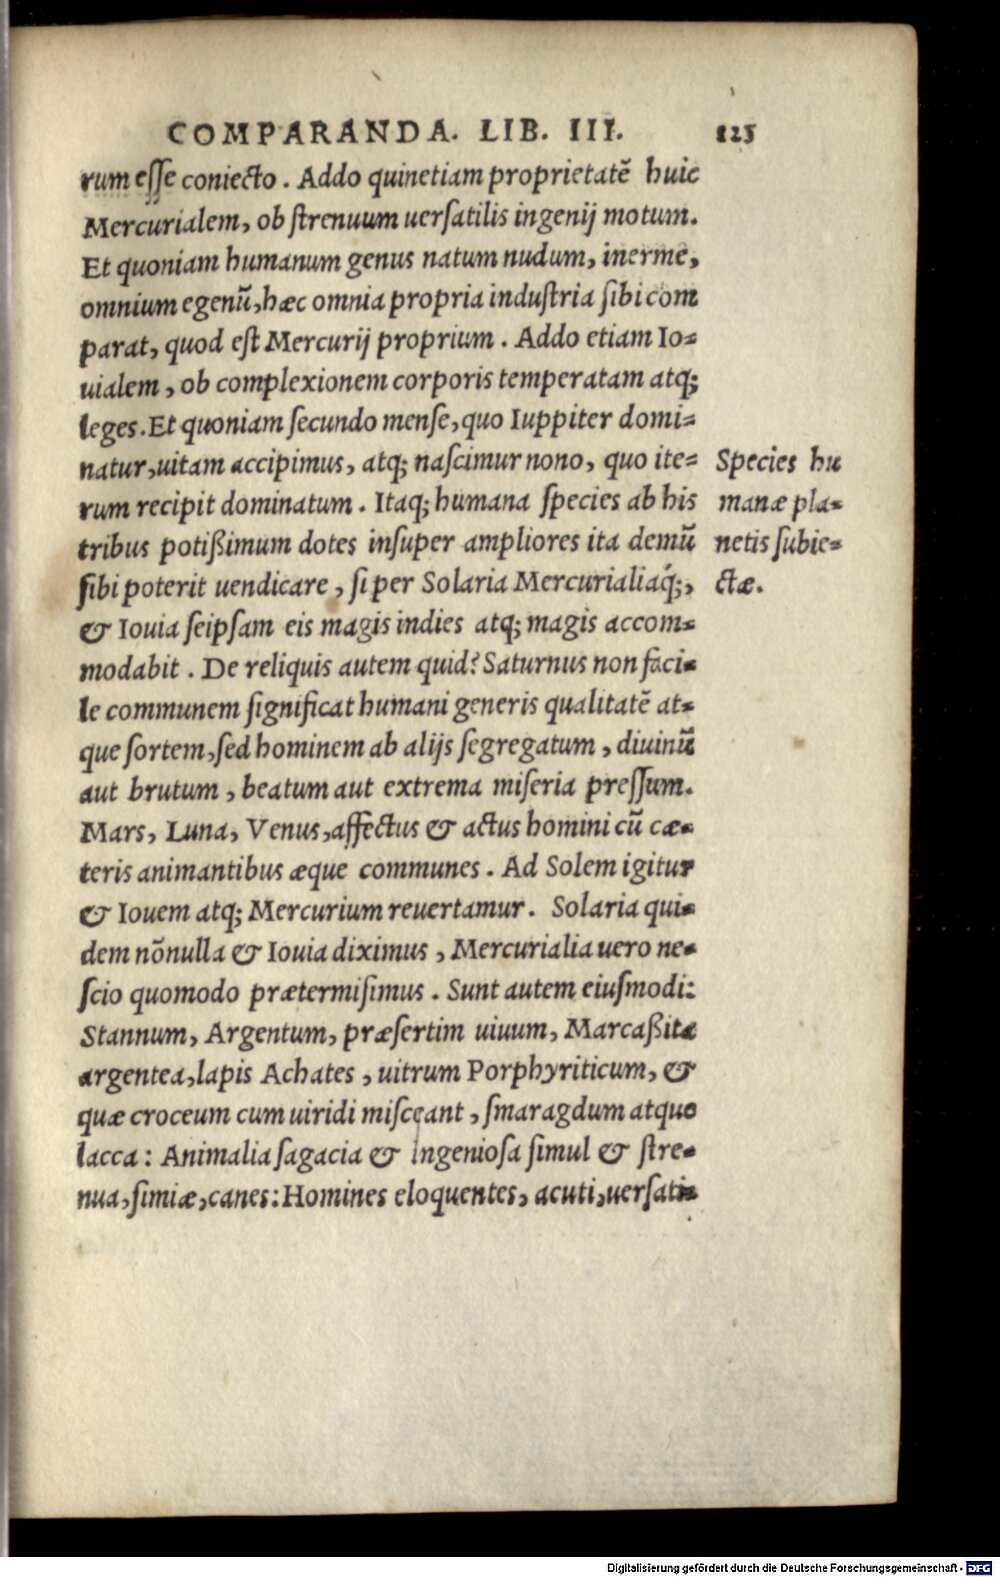 COMPARANDA. LIB. III. 125
rum esse coniecto. Addo quinetiam proprietatē huic
Mercurialem, ob strenuum uersatilis ingenij motum.
Et quoniam humanum genus natum nudum, inerme,
omnium egenū, hæc omnia propria industria sibi com
parat, quod est Mercurij proprium. Addo etiam Io=
uialem, ob complexionem corporis temperatam atq;
leges. Et quoniam secundo mense, quo Iuppiter domi=
natur, uitam accipimus, atq; nascimur nono, quo ite=
rum recipit dominatum. Itaq; humana species ab his
tribus potißimum dotes insuper ampliores ita demū
sibi poterit uendicare, si per Solaria Mercurialiaq́;,
& Iouia seipsam eis magis indies atq; magis accom=
modabit. De reliquis autem quid? Saturnus non faci=
le communem significat humani generis qualitatē at=
que sortem, sed hominem ab alijs segregatum, diuinū
aut brutum, beatum aut extrema miseria pressum.
Mars, Luna, Venus, affectus & actus homini cū cæ=
teris animantibus æque communes. Ad Solem igitur
& Iouem atq; Mercurium reuertamur. Solaria qui=
dem nōnulla & Iouia diximus, Mercurialia uero ne=
scio quomodo prætermisimus. Sunt autem eiusmodi:
Stannum, Argentum, præsertim uiuum, Marcaßita
argentea, lapis Achates, uitrum Porphyriticum, &
quæ croceum cum uiridi misceant, smaragdum atque
lacca: Animalia sagacia & ingeniosa simul & stre=
nua, simiæ, canes: Homines eloquentes, acuti, uersati=
Species hu
manæ pla=
netis subie=
ctæ.
Digitalisierung gefördert durch die Deutsche Forschungsgemeinschaft - DFG